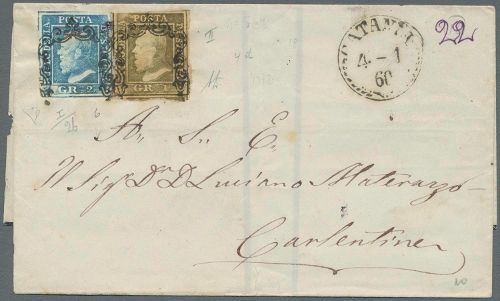 POSTA POSTA
GR. 2 GR. 1
CATANIA
4 - 1
60
22
II
I
A. S. E.
Il Sig.r D.n D. Luciano Materazzo
Carlentini